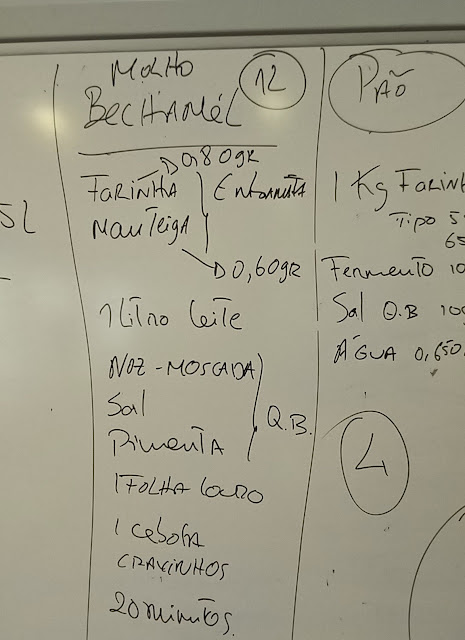 5L
MOLHO
BECHAMÉL
12
0,80gr
FARINHA
MANTEIGA
0,60gr
1 LITRO LEITE
NOZ-MOSCADA
SAL
PIMENTA
Q.B.
1 FOLHA LOURO
1 CEBOLA
CRAVINHOS
20 MINUTOS.
PÃO
1 Kg FARINH
TIPO 5
65
FERMENTO 10
SAL Q.B 10
ÁGUA 0,650
4